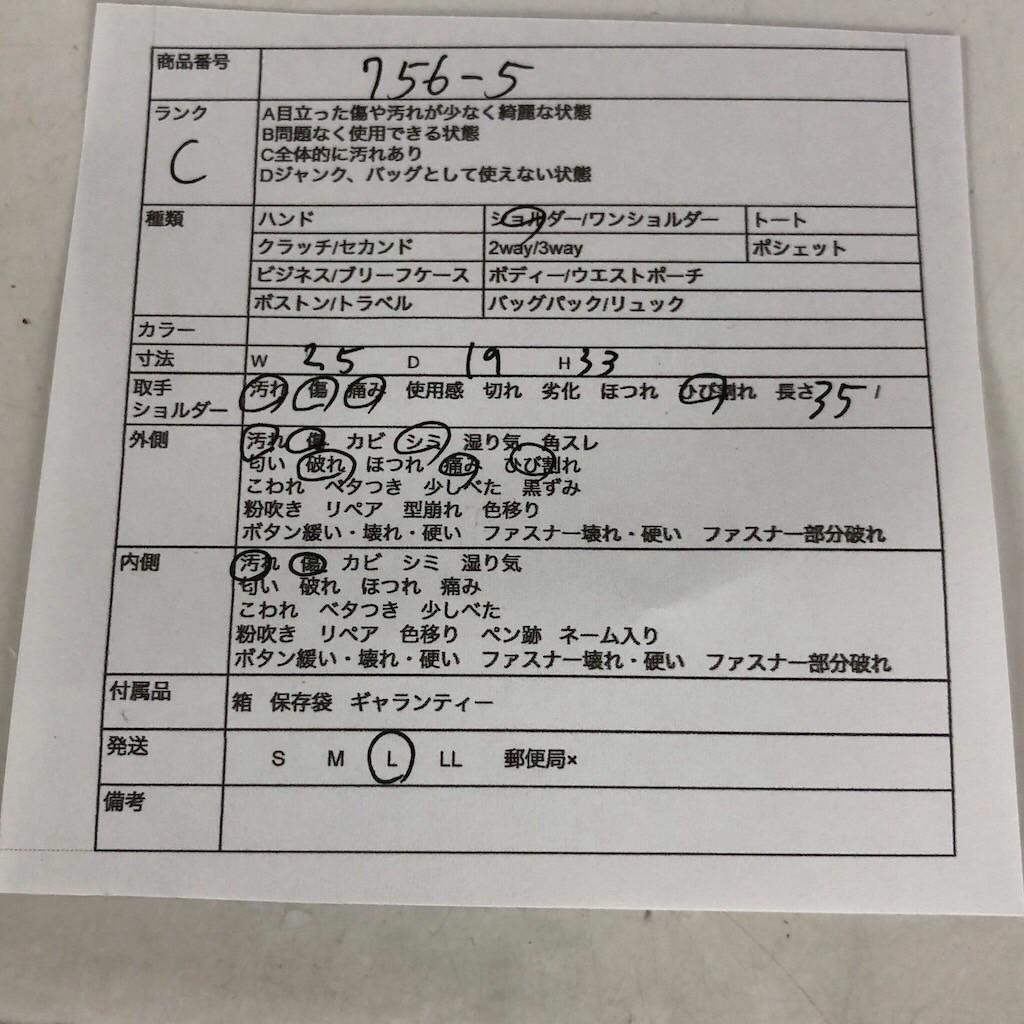 商品番号 756-5
ランク C
A目立った傷や汚れが少なく綺麗な状態
B問題なく使用できる状態
C全体的に汚れあり
Dジャンク、バッグとして使えない状態
種類 ハンド ショルダー/ワンショルダー トート
クラッチ/セカンド 2way/3way ポシェット
ビジネス/ブリーフケース ボディー/ウエストポーチ
ボストン/トラベル バッグパック/リュック
カラー
寸法 W 25 D 19 H 33
取手 汚れ 傷 痛み 使用感 切れ 劣化 ほつれ ひび割れ 長さ 35 /
ショルダー
外側 汚れ 傷 カビ シミ 湿り気 角スレ
匂い 破れ ほつれ 痛み ひび割れ
こわれ ベタつき 少しべた 黒ずみ
粉吹き リペア 型崩れ 色移り
ボタン緩い・壊れ・硬い ファスナー壊れ・硬い ファスナー部分破れ
内側 汚れ 傷 カビ シミ 湿り気
匂い 破れ ほつれ 痛み
こわれ ベタつき 少しべた
粉吹き リペア 色移り ペン跡 ネーム入り
ボタン緩い・壊れ・硬い ファスナー壊れ・硬い ファスナー部分破れ
付属品 箱 保存袋 ギャランティー
発送 S M L LL 郵便局×
備考